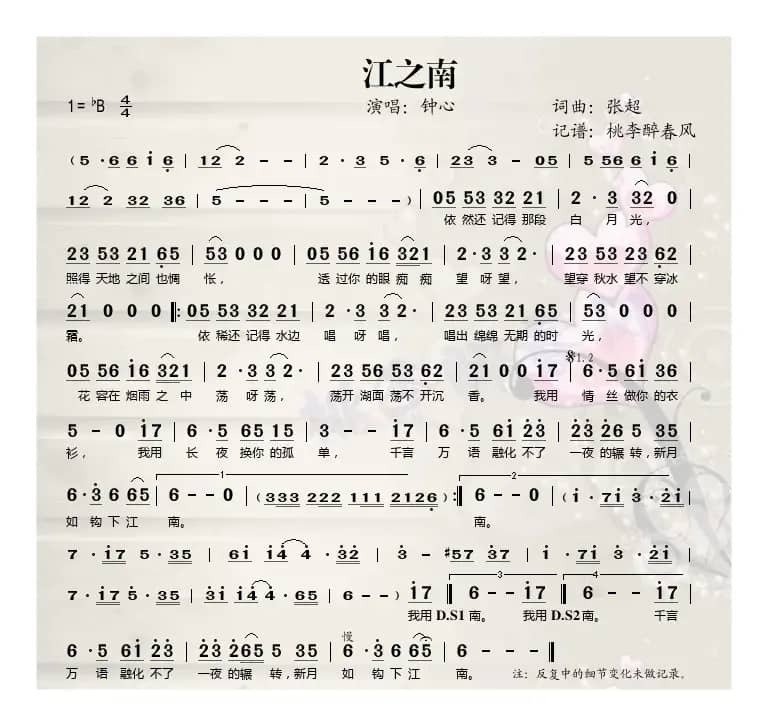 江之南
1=♭B 4/4 演唱：钟心 词曲：张超
记谱：桃李醉春风
(5·6 6 i 6 | 12 2 - - | 2·3 5·6 | 23 3 - 05 | 5 56 6 i 6 |
12 2 32 36 | 5 - - - | 5 - - - ) | 05 53 32 21 | 2·3 32 0 |
依然还记得那段 白月光，
23 53 21 65 | 53 0 0 0 | 05 56 i6 321 | 2·3 3 2· | 23 53 23 62 |
照得天地之间也惆 怅， 透过你的眼痴痴 望呀望， 望穿秋水望不穿冰
21 0 0 0 ‖: 05 53 32 21 | 2·3 3 2· | 05 53 21 65 | 53 0 0 0 |
霜。 依稀还记得水边 唱呀唱， 唱出绵绵无期的时 光，
𝄋1.2
05 56 i6 321 | 2·3 3 2· | 23 56 53 62 | 21 0 0 i7 | 6·5 6i 36 |
花容在烟雨之中 荡呀荡， 荡开湖面荡不开沉 香。 我用 情丝做你的衣
5 - 0 i7 | 6·5 65 15 | 3 - - i7 | 6·5 6i 23 | 23 26 5 35 |
衫， 我用 长夜换你的孤 单， 千言 万语融化不了 一夜的辗转，新月
1 2
6·3 6 65 | 6 - - 0 | (333 222 111 2126) :‖ 6 - - 0 | (i·7i 3·2i |
如钩下江 南。 南。
7·i7 5·35 | 6i i4 4·32 | 3 - #57 37 | i·7i 3·2i |
3 4
7·i7 5·35 | 3i i4 4·65 | 6 - - - ) i7 ‖ 6 - - i7 ‖ 6 - - i7 |
我用 D.S1 南。 我用 D.S2 南。 千言
慢
6·5 6i 23 | 23 265 5 35 | 6·3 6 65 | 6 - - - ‖
万语融化不了 一夜的辗转，新月 如钩下江 南。 注：反复中的细节变化未做记录。